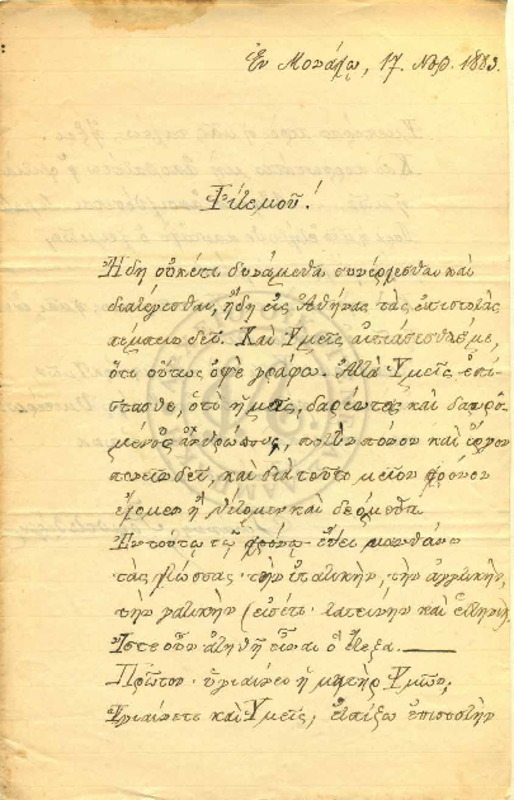 Ἐν Μονάχῳ, 17. Νβρ. 1883.
Φίλε μοῦ!
Ἤδη οὐκέτι δυνάμεθα συνέρχεσθαι καὶ
διαλέγεσθαι, ἤδη εἰς Ἀθήνας τὰς ἐπιστολὰς
πέμπειν δεῖ. Καὶ Ὑμεῖς αἰτιάσεσθέ με,
ὅτι οὕτως ὀψὲ γράφω. Ἀλλὰ Ὑμεῖς ἐπί-
στασθε, ὅτι ἡμᾶς, καὶ
πολὺν πόνον καὶ ἔργον
πονεῖν δεῖ, καὶ διὰ τοῦτο μεῖον χρόνον
ἔχομεν ἢ θέλομεν καὶ δεόμεθα
Ἐν τούτῳ τῷ χρόνῳ μανθάνω
τὰς γλώσσας· τὴν ἰταλικὴν, τὴν ἀγγλικὴν,
τὴν γαλικὴν (εἰσέτι λατεινὴν καὶ ἑλληνικ)
Ἴστε οὖν ἀληθῆ εἶναι ἃ ἔλεξα. —
Πρῶτον· ὑγιαίνει ἡ μήτηρ Ὑμῶν;
Ὑγιαίνετε καὶ Ὑμεῖς, ἐλπίζω ἐπιστολὴν